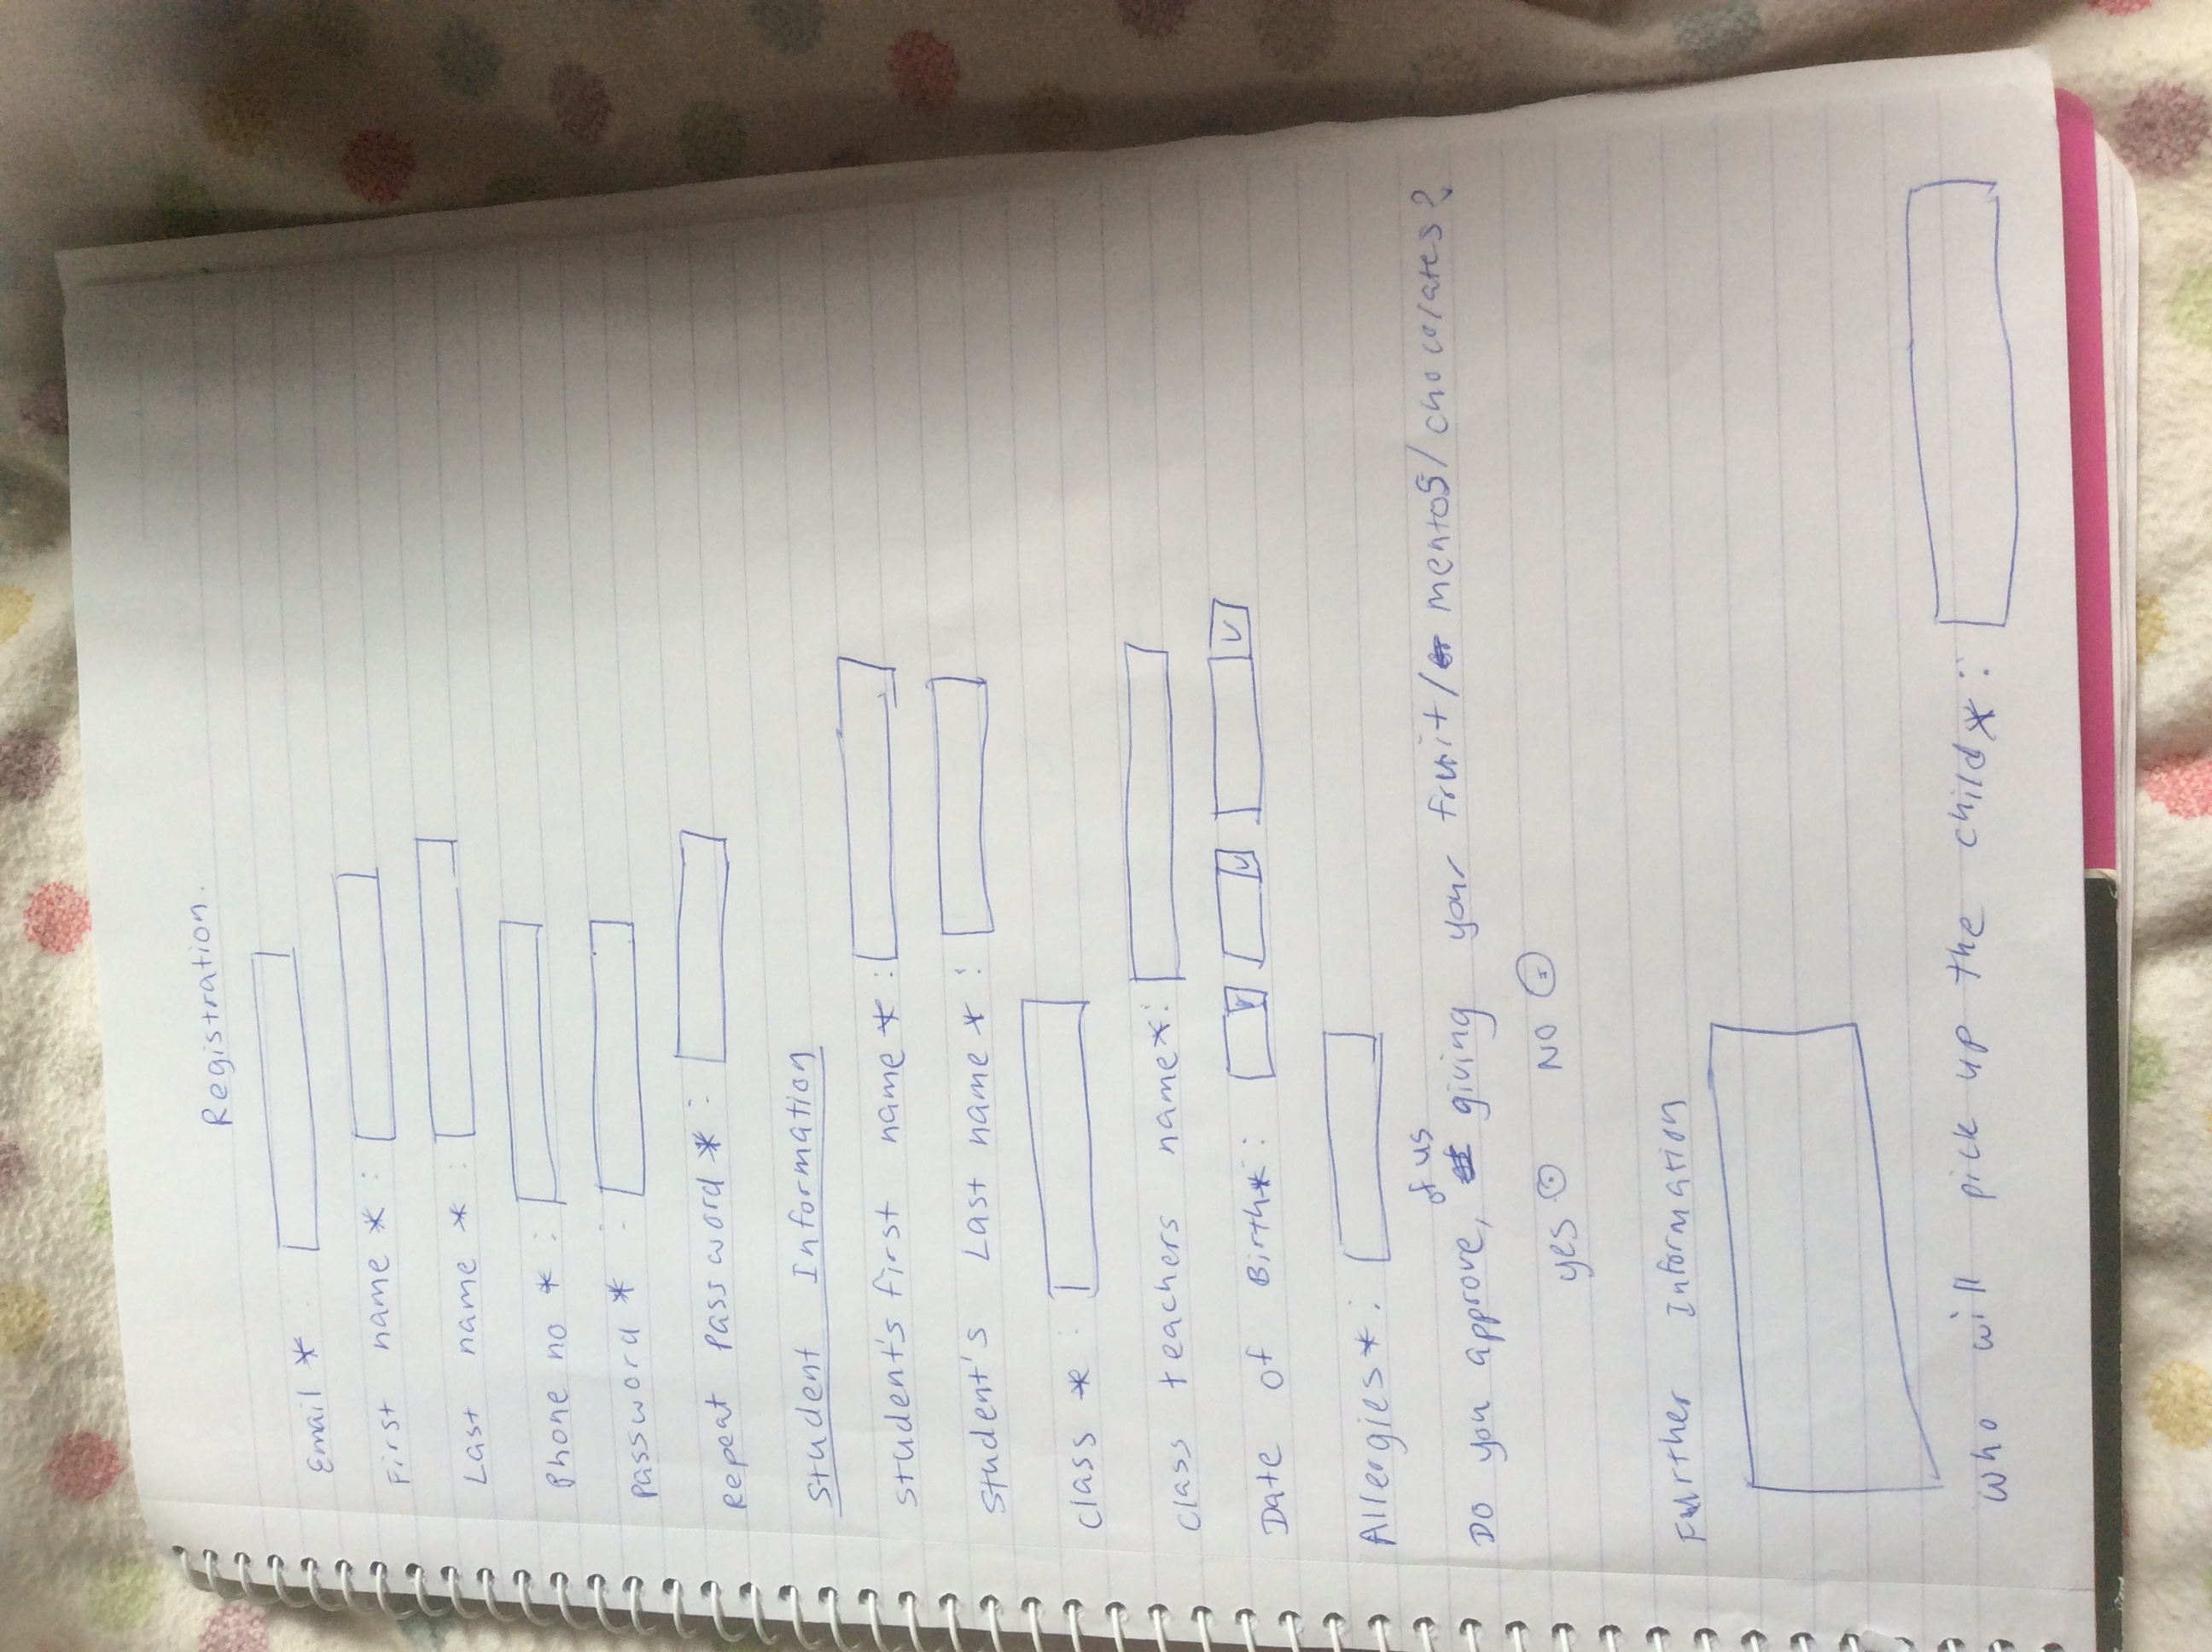 Registration.
Email * :
First name * :
Last name * :
Phone no * :
Password * :
Repeat Password * :
Student Information
Student's first name * :
Student's Last name * :
Class * :
Class teachers name * :
Date of Birth * :
Allergies * :
of us
Do you approve, giving your fruit / mentos / chocolates?
yes NO
Further Information
Who will pick up the child * :